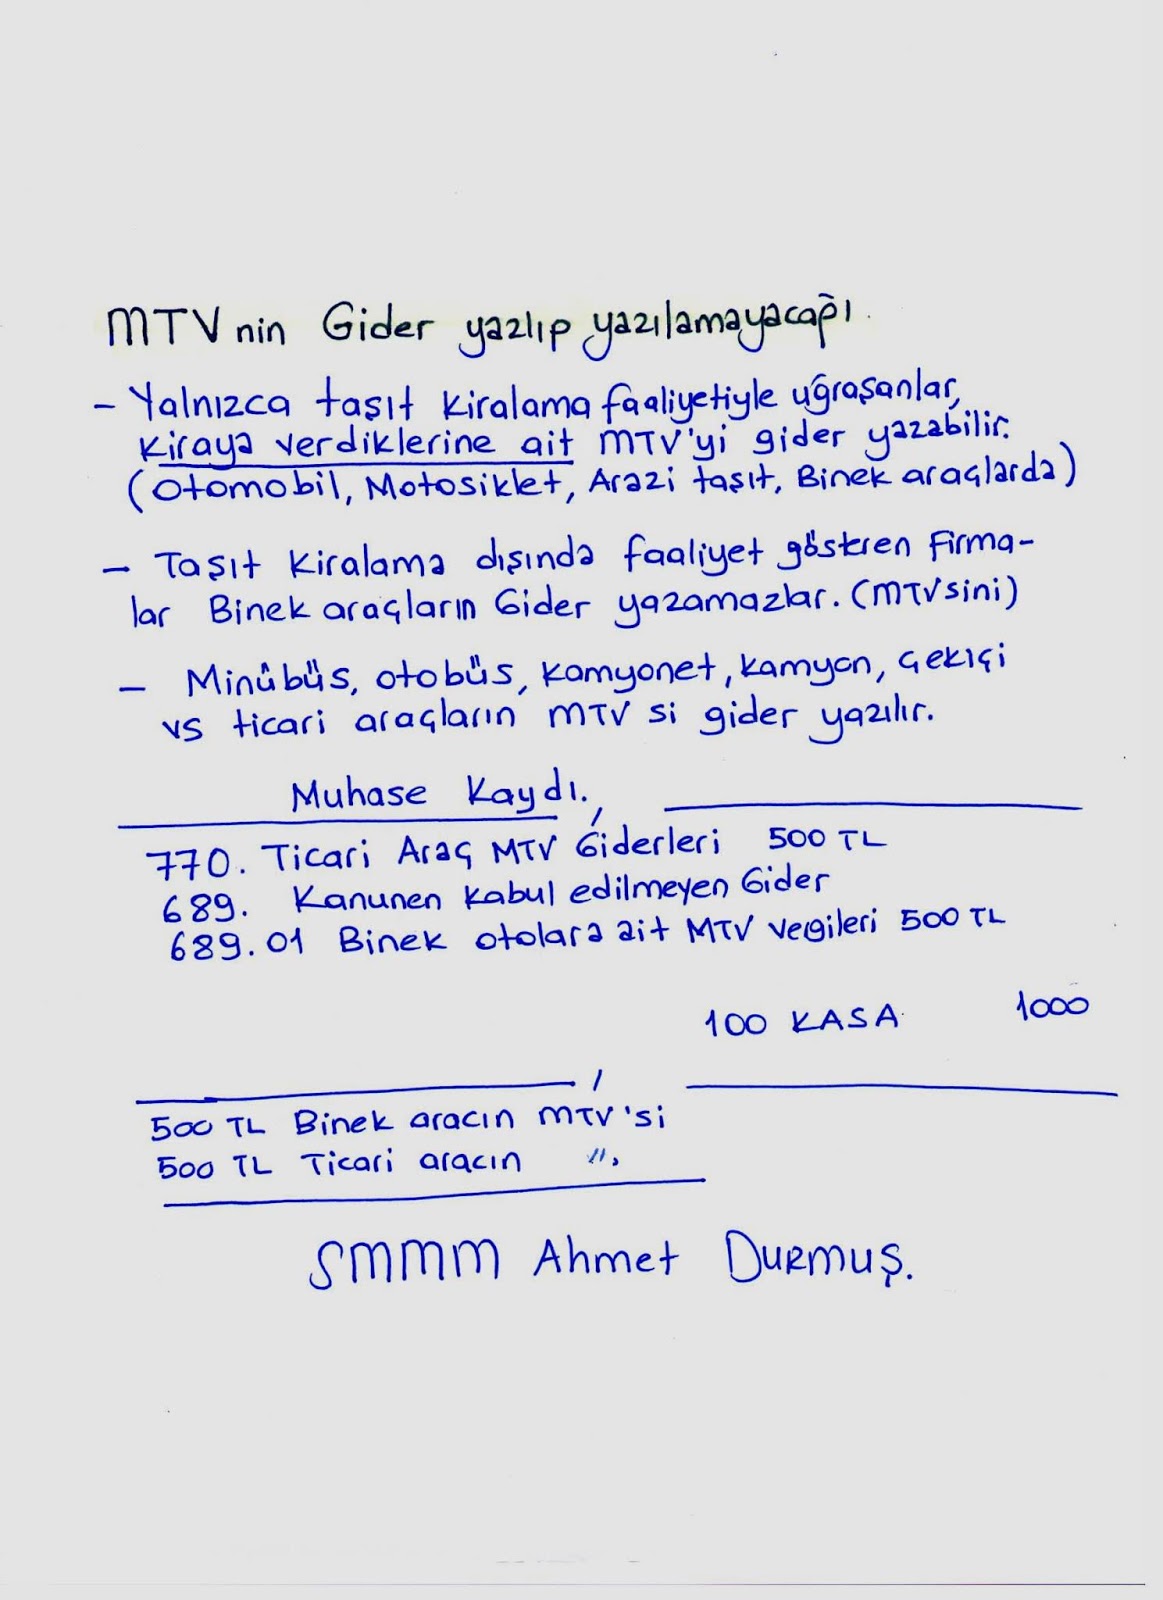 MTV nin Gider yazlıp yazılamayacağı.
- Yalnızca taşıt kiralama faaliyetiyle uğraşanlar,
kiraya verdiklerine ait MTV'yi gider yazabilir.
(Otomobil, Motosiklet, Arazi taşıt, Binek araçlarda)
- Taşıt kiralama dışında faaliyet gösteren firma-
lar Binek araçların Gider yazamazlar. (MTVsini)
- Minübüs, otobüs, kamyonet, kamyon, çekiçi
vs ticari araçların MTV si gider yazılır.
Muhase Kaydı.
770. Ticari Araç MTV Giderleri 500 TL
689. Kanunen kabul edilmeyen Gider
689.01 Binek otolara ait MTV vergileri 500 TL
100 KASA 1000
500 TL Binek aracın MTV'si
500 TL Ticari aracın ".
SMMM Ahmet Durmuş.